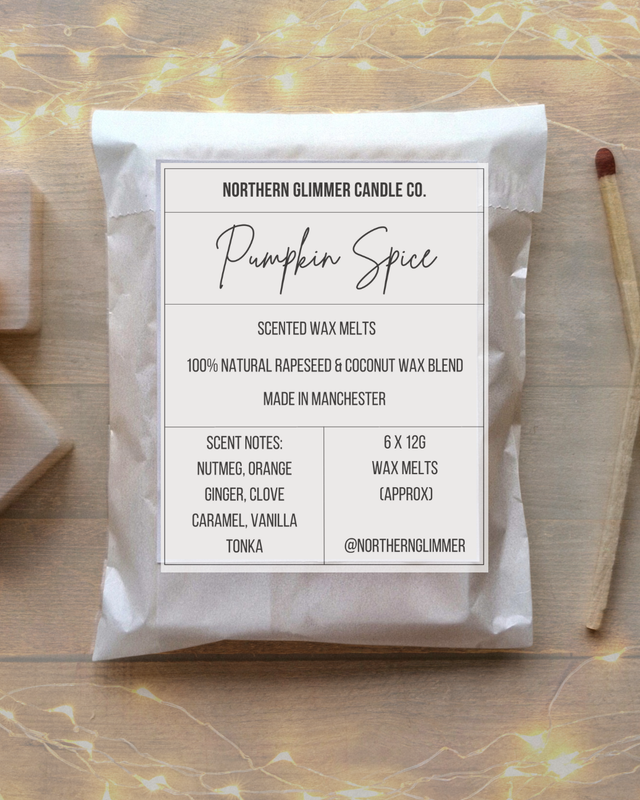 NORTHERN GLIMMER CANDLE CO.
Pumpkin Spice
SCENTED WAX MELTS
100% NATURAL RAPESEED & COCONUT WAX BLEND
MADE IN MANCHESTER
SCENT NOTES:
NUTMEG, ORANGE
GINGER, CLOVE
CARAMEL, VANILLA
TONKA
6 X 12G
WAX MELTS
(APPROX)
@NORTHERNGLIMMER